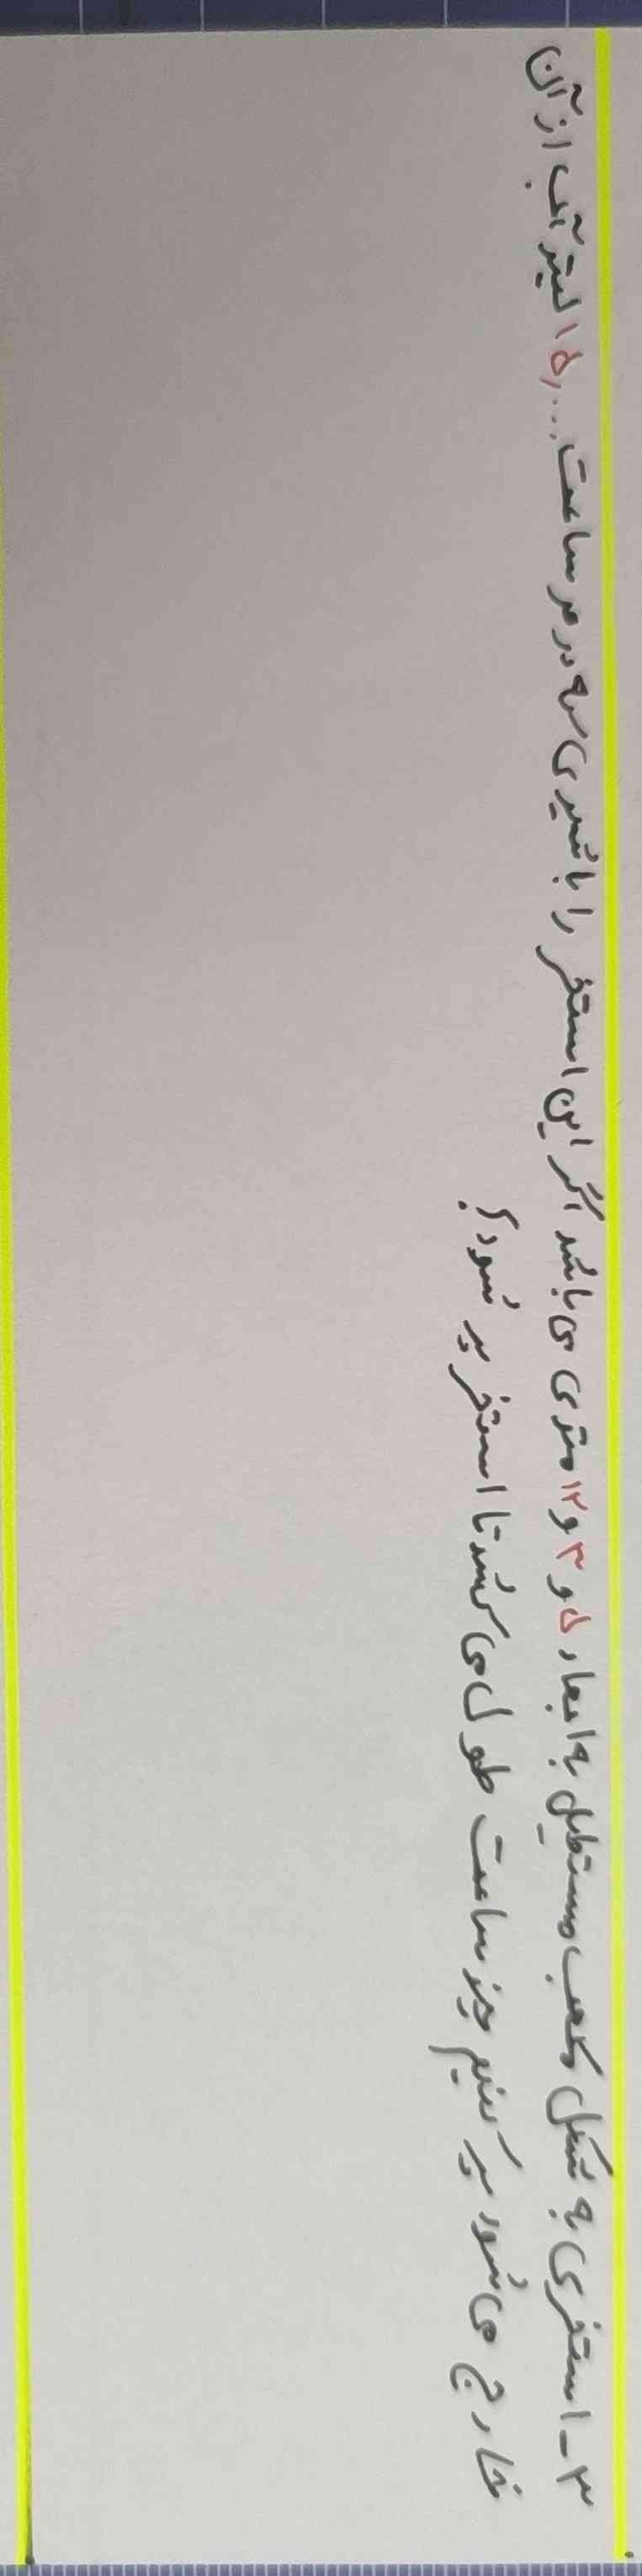 ۳_ استخری به شکل مکعب مستطیل به ابعاد ۵ و ۳ و ۱۲ متری می باشد اگر این استخر را با شیری که در هر ساعت ۱۵,۰۰۰ لیتر آب از آن
خارج می شود پر کنیم چند ساعت طول می کشد تا استخر پر شود؟